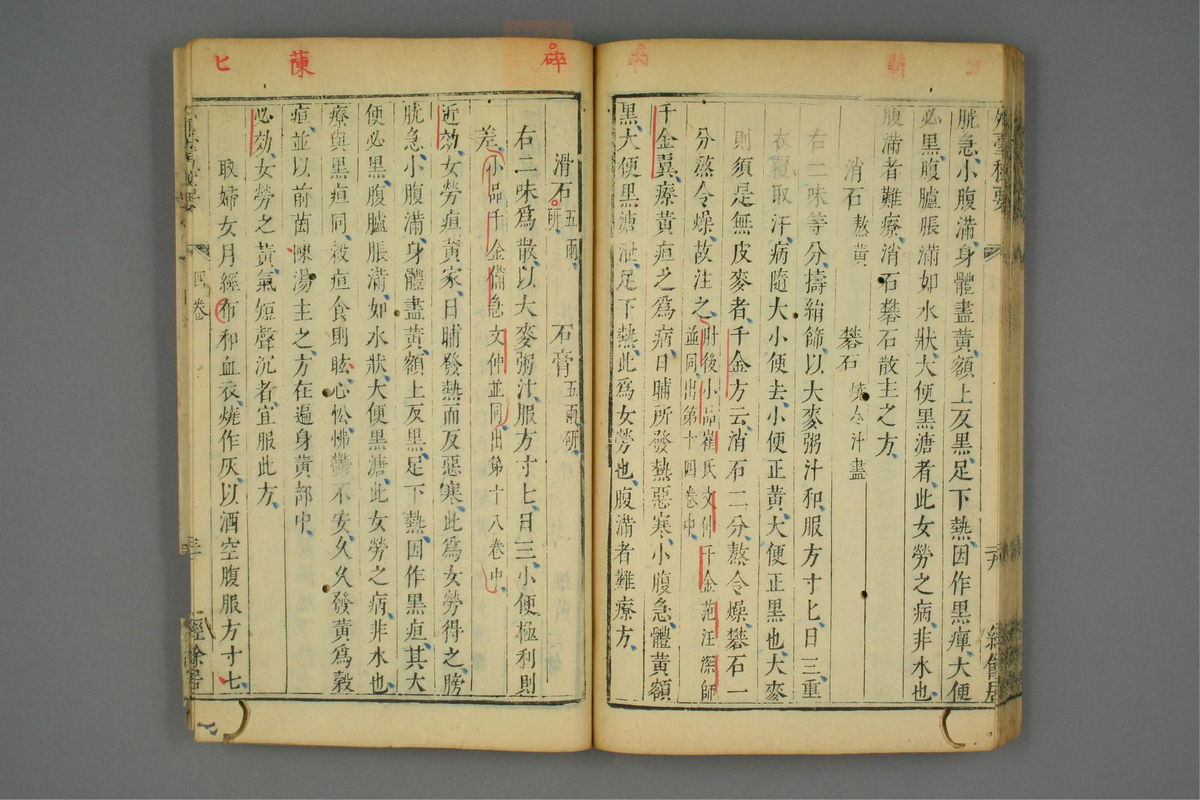 外臺秘要
胱急小腹滿身體盡黃額上反黑足下熱因作黑癉大便
必黑腹臚脹滿如水狀大便黑溏者此女勞之病非水也
腹滿者難療消石礬石散主之方
消石熬黃 礬石燒令汁盡
右二味等分擣絹篩以大麥粥汁和服方寸匕日三重
衣覆取汗病隨大小便去小便正黃大便正黑也大麥
則須是無皮麥者千金方云消石二分熬令燥礬石一
分熬令燥故注之肘後小品崔氏文仲千金范汪深師
並同出第十四卷中
千金翼療黃疸之為病日晡所發熱惡寒小腹急體黃額
黑大便黑溏泄足下熱此為女勞也腹滿者難療方
碎
滑石五兩研 石膏五兩研
右二味為散以大麥粥汁服方寸匕日三小便極利則
差小品千金備急文仲並同出第十八卷中
近効女勞疸黃家日晡發熱而反惡寒此為女勞得之膀
胱急小腹滿身體盡黃額上反黑足下熱因作黑疸其大
便必黑腹臚脹滿如水狀大便黑溏此女勞之病非水也
䔖
療與黑疸同穀疸食則眩心忪怫鬱不安久久發黃為穀
疸並以前茵蔯湯主之方在遍身黃部中
必効女勞之黃氣短聲沉者宜服此方
匕
取婦女月經布和血衣燒作灰以酒空腹服方寸匕
四卷
經餘居